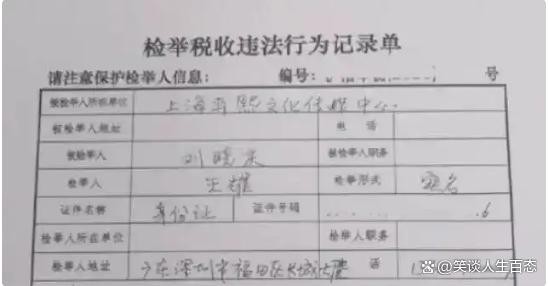 检举税收违法行为记录单
请注意保护检举人信息: 编号: 号
被检举人所在单位 上海 熙文化传媒中心
被检举人地址 电话
被检举人 刘晓 被检举人职务
检举人 王雄 检举形式 实名
证件名称 身份证 证件号码 6
检举人所在单位 检举人职务
检举人地址 广东深圳市福田区长城 话
头条 @笑谈人生百态